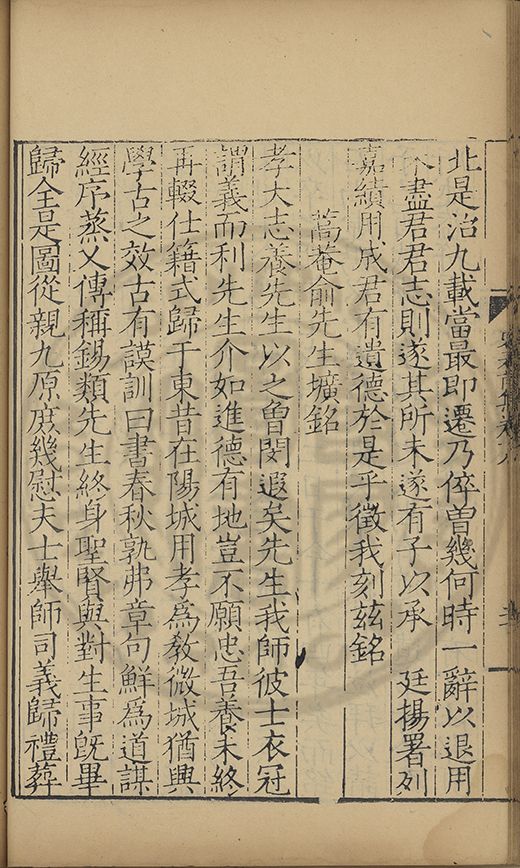 北是治九載當最即遷乃倅曽幾何時一辭以退用
不盡君君志則遂其所未遂有子以承　廷揚署列
嘉績用成君有遺德於是乎徵我刻兹銘
蒿菴俞先生壙銘
孝大志養先生以之曽閔遐矣先生我師彼士衣冠
謂義而利先生介如進德有地豈不願忠吾養未終
再輟仕籍式歸于東昔在陽城用孝為教微城猶興
學古之效古有謨訓曰書春秋孰弗章句鮮為道謀
經序蒸乂傳稱錫類先生終身聖賢與對生事旣畢
歸全是圖從親九原庶幾慰夫士舉師司義歸禮葬